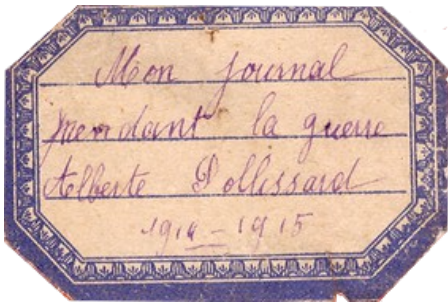 Mon journal
pendant la guerre
Alberte Pollissard
1914-1915